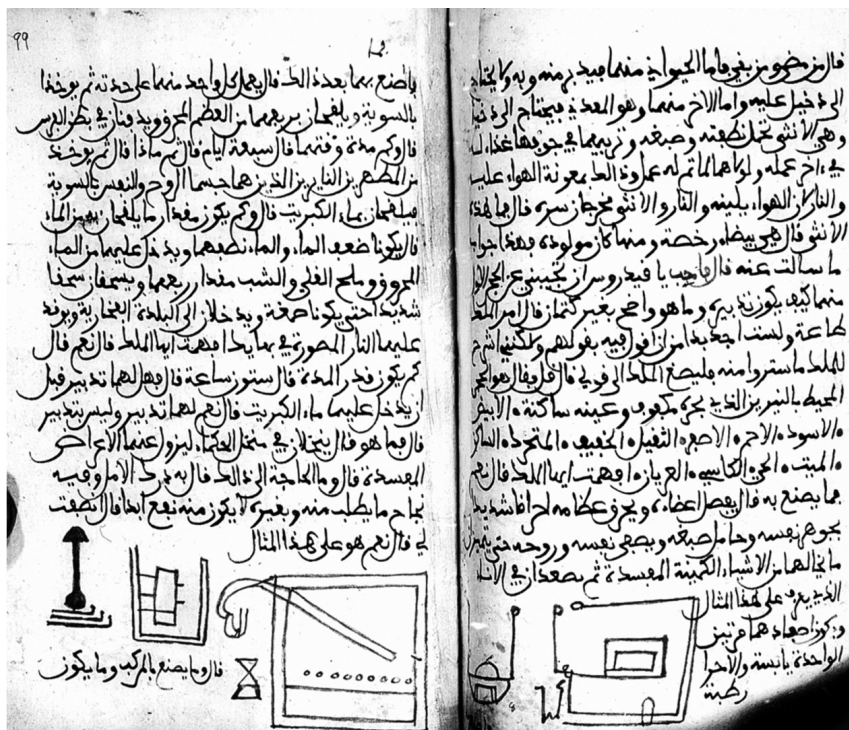 قال من مضى ومن بقي فاما الحيواني منهما فيدبر منه وبه ولا يحتاج
الى دخيل عليه واما الاخر منهما وهو المعدني فيحتاج الى دخيل
وهي الانثى تحل نطفته وصبغه وتربيهما في جوفها غذاء له
في اخر عمله ولولاهما لما تم له عمل وذلك بمعونة الهواء عليه
والنار لان الهواء يلينه والنار والانثى يخرجان سره قال فما هذه
الانثى قال هي بيضاء رخصة ومنها كان مولوده فهذا جواب
ما سالت عنه قال فاجب يا فيدروس ان تخبرني عن الحجر الاول
منهما كيف يكون تدبيره وما هو واضح بغير كتمان قال امر الملك
طاعة ولست اجد بدا من ان اقول فيه بقولهم ولكنني اشرح
للملك ما ستروا منه فليصغ الملك الى قولي قال قل فقال هو الحجر
المحيط بالنيرين الذي بحره مكفوف وعينه ساكنة الابيض
الاسود الاحمر الاصفر الثقيل الخفيف المتحرك الساكن
الميت الحي الكاسي العريان افهمت ايها الملك قال نعم
فما يصنع به قال يفصل اعضاءه ويحرق عظامه احراقا شديدا
بجوهر نفسه وحامل صبغه ويصفى نفسه وروحه حتى يتميز
ما خالطهما من الاشياء الكمينة المفسدة ثم يصعدان في الاناء
الذي يعرف على هذا المثال
ويكون اصعادهما مرتين
الواحدة يابسة والاخرى
رطبة
99
12
ما صنع بهما بعد ذلك قال يعمل كل واحد منهما على حدته ثم يوخذا
بالسوية ويلقمان من ربعهما من العظم المحروق ويدفنان في بطن الفرس
قال وكم مدة دفنهما قال سبعة ايام قال ثم ماذا قال ثم يوخذ
من المطهرين النايرين الذين هما جسما الروح والنفس بالسوية
فيلقمان بماء الكبريت قال وكم يكون مقدار ما يلقمان به من الماء
قال يكونا ضعف الماء والماء نصفهما ويدخل عليهما من الماء
المحروق وملح القلي والشب مقدار ربعهما ويسحقان سحقا
شديدا حتى يكونا صبغة ويدخلان الى البلدة الفخارية ويوقد
عليهما النار المصورة في بها بدا افهمت ايها الملك قال نعم قال
كم يكون قدر المدة قال ستون ساعة قال فهل لهما تدبير قبل
ان يدخل عليهما ماء الكبريت قال نعم لهما تدبير وليس بتدبير
قال فما هو قال ينخلان في منخل الحكماء ليزول عنهما الاعراض
المفسدة قال وما الحاجة الى ذلك قال به يدرك الامل وفيه
نجاح ما يطلب منه وبغيره لا يكون منه نفع ابدا قال نصفت
لي قال نعم هو على هذا المثال
قال وما يصنع بالمركب وما يكون